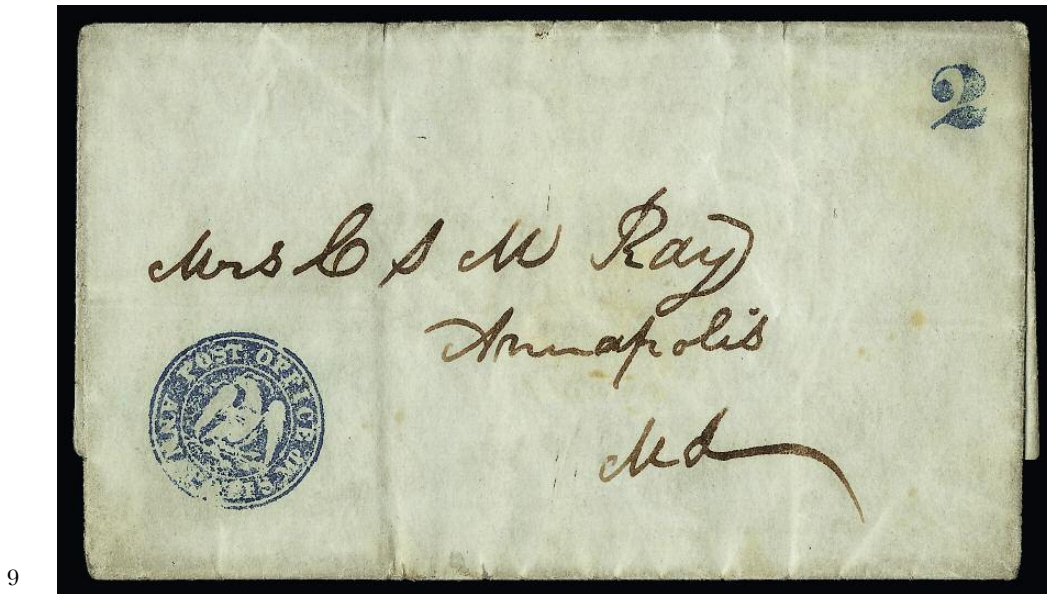 2
Mrs C S M Ray
Annapolis
Md
POST OFFICE
9